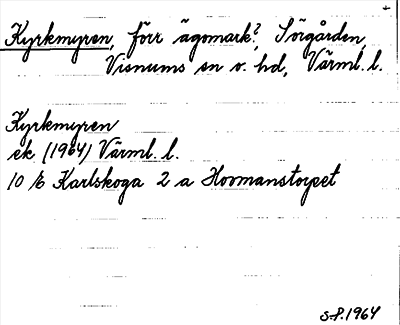 Kyrkmyren, förr ägomark?, Sörgården,
Visnums sn o. hd, Värml. l.
Kyrkmyren
ek (1964) Värml. l.
10 E Karlskoga 2 a Hovmanstorpet
S.P. 1964